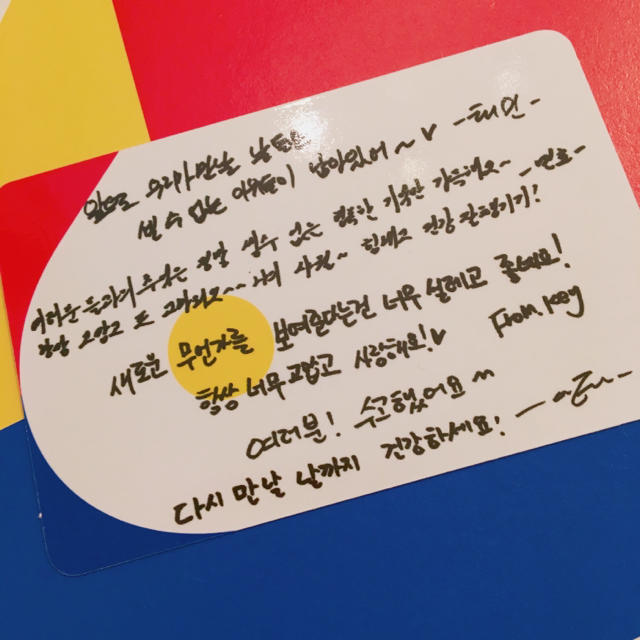 앞으로 우리가 만날 날들
셀 수 없는 남아있어~♥ -태민-
여러분들과의 추억은 정말 셀수 없는 행복한 기억만 가득해요~ -민호-
항상 고맙고 또 나의 사랑~ 힘내고 건강 잘챙기기!
새로운 무언가를 보여준다는건 너무 설레고 좋네요!
항상 너무 고맙고 사랑해요!♥ From. key
여러분! 수고했어요 ^^
다시 만날 날까지 건강하세요!